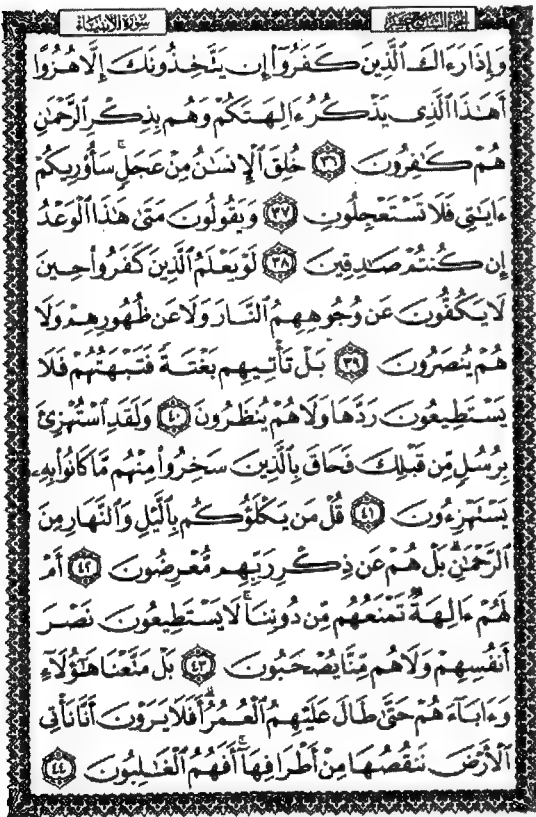 سورة الأنبياء
الجزء السابع عشر
وَإِذَا رَءَاكَ ٱلَّذِينَ كَفَرُوٓاْ إِن يَتَّخِذُونَكَ إِلَّا هُزُوًا
أَهَٰذَا ٱلَّذِى يَذْكُرُ ءَالِهَتَكُمْ وَهُم بِذِكْرِ ٱلرَّحْمَٰنِ
هُمْ كَٰفِرُونَ ٣٦ خُلِقَ ٱلْإِنسَٰنُ مِنْ عَجَلٍ ۚ سَأُوْرِيكُمْ
ءَايَٰتِى فَلَا تَسْتَعْجِلُونِ ٣٧ وَيَقُولُونَ مَتَىٰ هَٰذَا ٱلْوَعْدُ
إِن كُنتُمْ صَٰدِقِينَ ٣٨ لَوْ يَعْلَمُ ٱلَّذِينَ كَفَرُواْ حِينَ
لَا يَكُفُّونَ عَن وُجُوهِهِمُ ٱلنَّارَ وَلَا عَن ظُهُورِهِمْ وَلَا
هُمْ يُنصَرُونَ ٣٩ بَلْ تَأْتِيهِم بَغْتَةً فَتَبْهَتُهُمْ فَلَا
يَسْتَطِيعُونَ رَدَّهَا وَلَا هُمْ يُنظَرُونَ ٤٠ وَلَقَدِ ٱسْتُهْزِئَ
بِرُسُلٍ مِّن قَبْلِكَ فَحَاقَ بِٱلَّذِينَ سَخِرُواْ مِنْهُم مَّا كَانُواْ بِهِۦ
يَسْتَهْزِءُونَ ٤١ قُلْ مَن يَكْلَؤُكُم بِٱلَّيْلِ وَٱلنَّهَارِ مِنَ
ٱلرَّحْمَٰنِ ۗ بَلْ هُمْ عَن ذِكْرِ رَبِّهِم مُّعْرِضُونَ ٤٢ أَمْ
لَهُمْ ءَالِهَةٌ تَمْنَعُهُم مِّن دُونِنَا ۚ لَا يَسْتَطِيعُونَ نَصْرَ
أَنفُسِهِمْ وَلَا هُم مِّنَّا يُصْحَبُونَ ٤٣ بَلْ مَتَّعْنَا هَٰٓؤُلَآءِ
وَءَابَآءَهُمْ حَتَّىٰ طَالَ عَلَيْهِمُ ٱلْعُمُرُ ۗ أَفَلَا يَرَوْنَ أَنَّا نَأْتِى
ٱلْأَرْضَ نَنقُصُهَا مِنْ أَطْرَافِهَآ ۚ أَفَهُمُ ٱلْغَٰلِبُونَ ٤٤